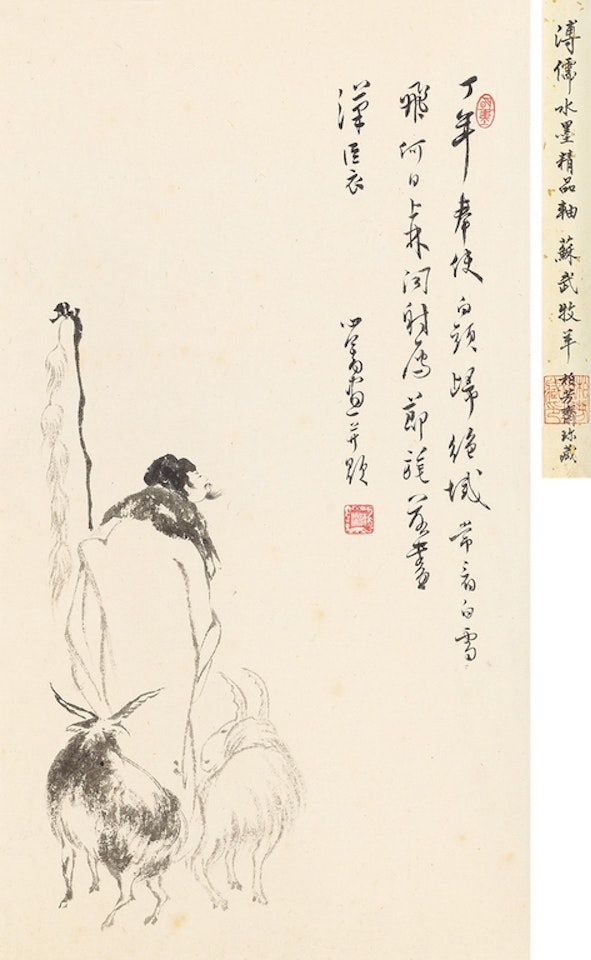 丁年奉使白頭歸絕域常看白雪
飛何日上林聞射雁節旄落盡
漢臣衣
心畬畫并題
溥儒水墨精品軸 蘇武牧羊 柏芳齋珍藏